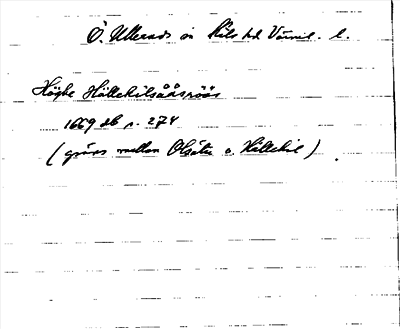 Ö. Ullerud sn Kils hd Värml. l.
Högbe Hällekilsååsröös
1669 db s. 274
(gräns mellan Olsäter o. Hällekil)